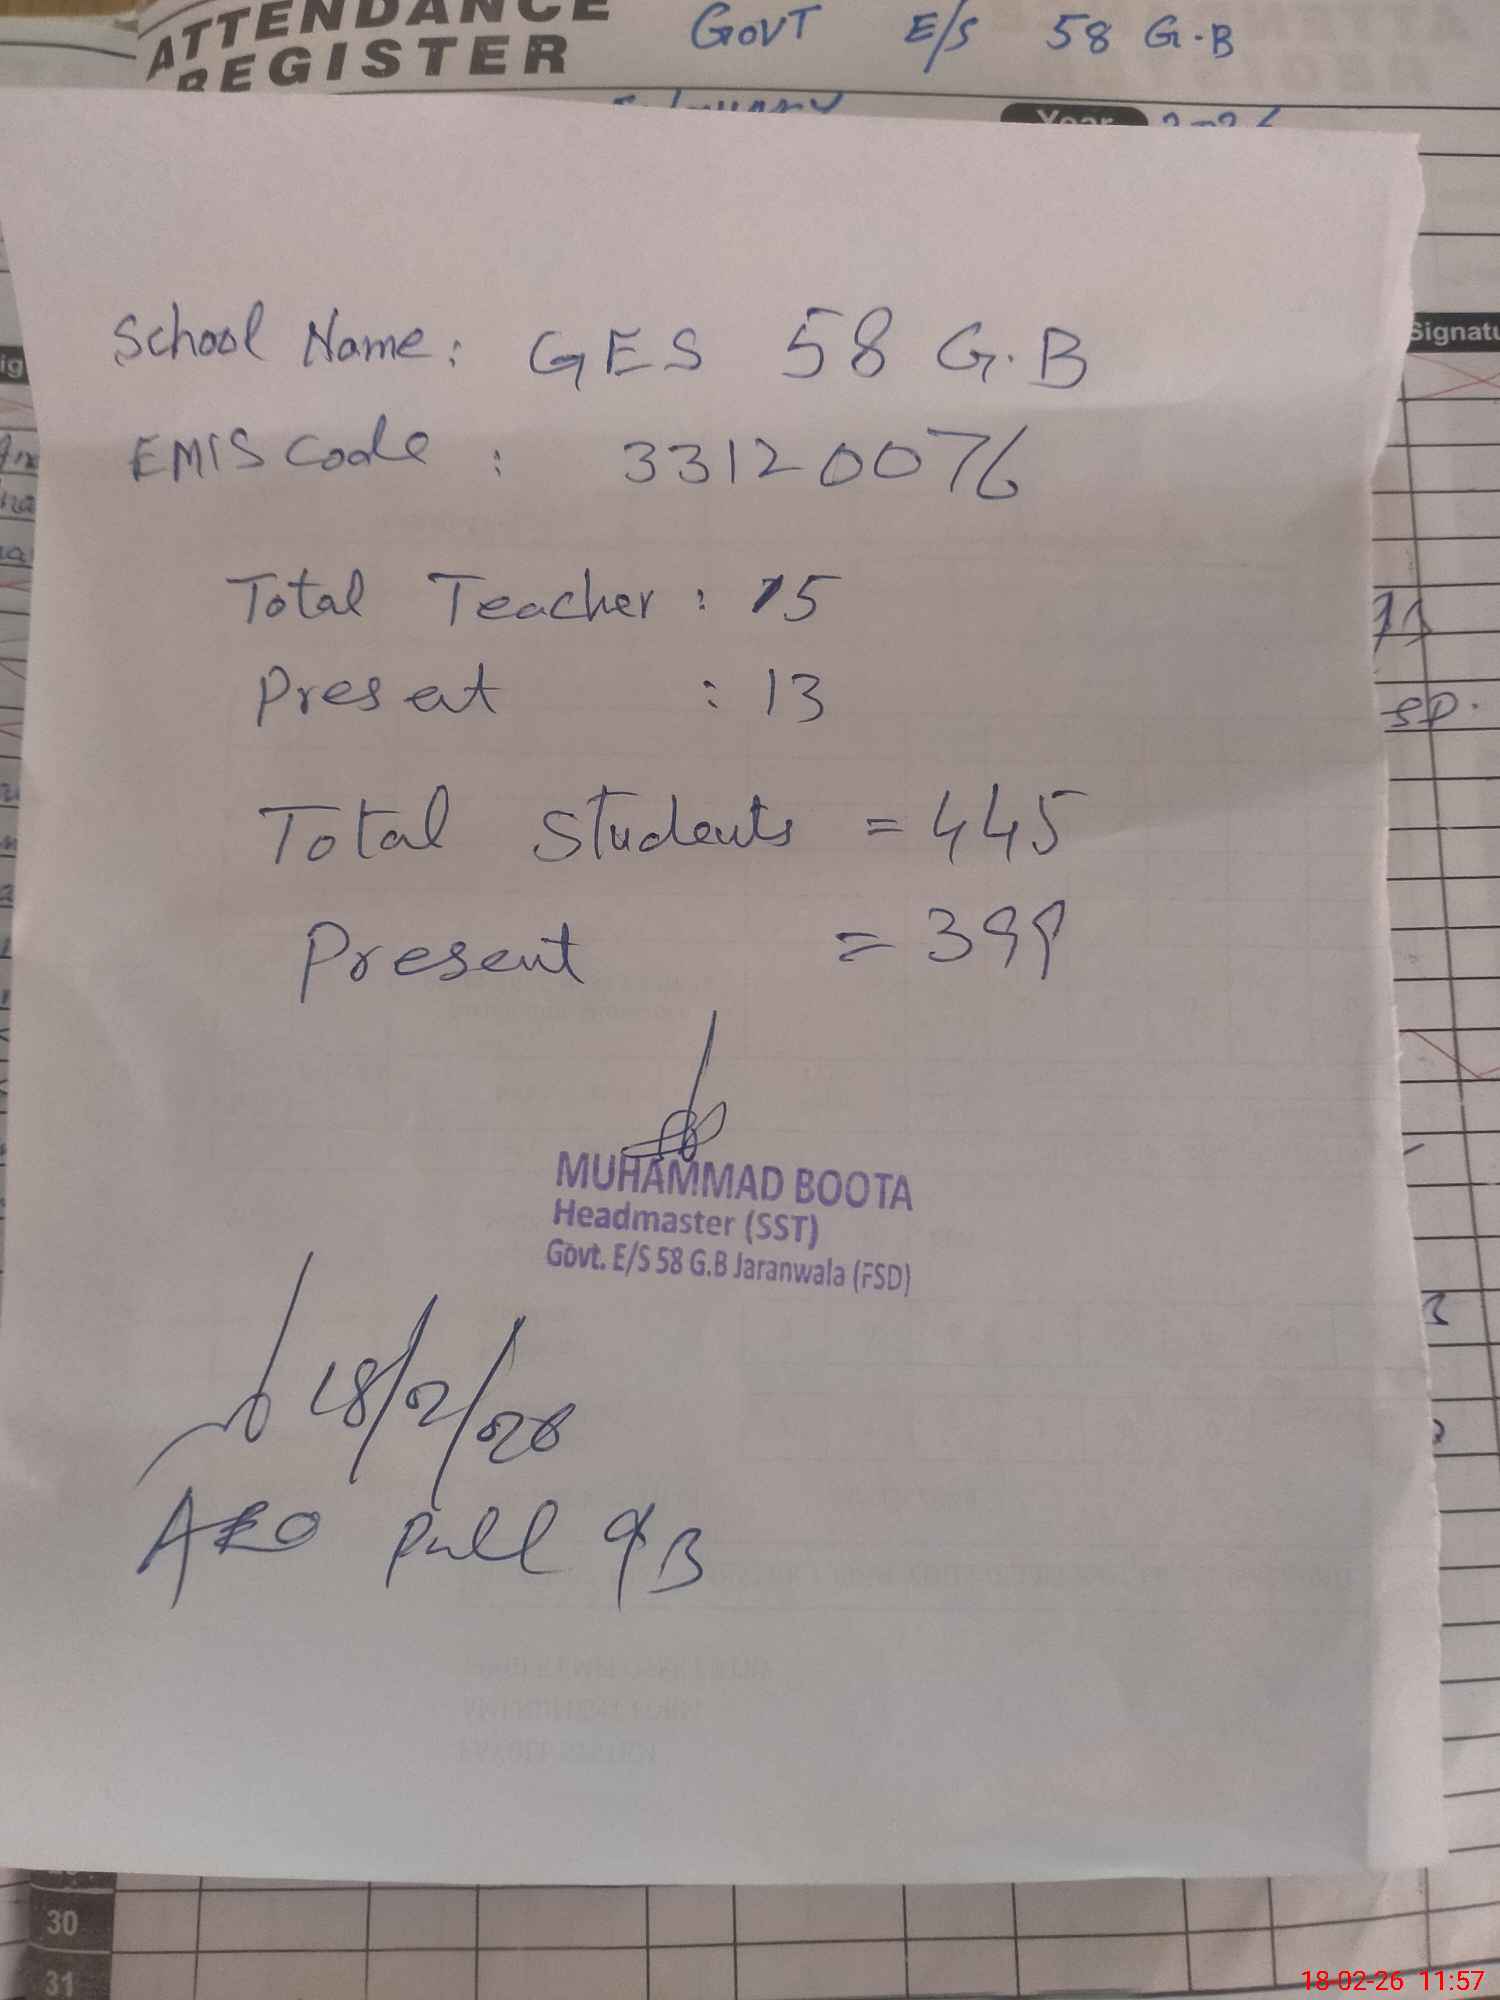 ATTENDANCE
REGISTER
GOVT E/S 58 G.B
Year
School Name: GES 58 G.B
EMIS Code : 33120076
Total Teacher : 15
Present : 13
Total Students = 445
Present = 399
MUHAMMAD BOOTA
Headmaster (SST)
Govt. E/S 58 G.B Jaranwala (FSD)
18/2/26
AEO Pull GB
30
31
18-02-26 11:57